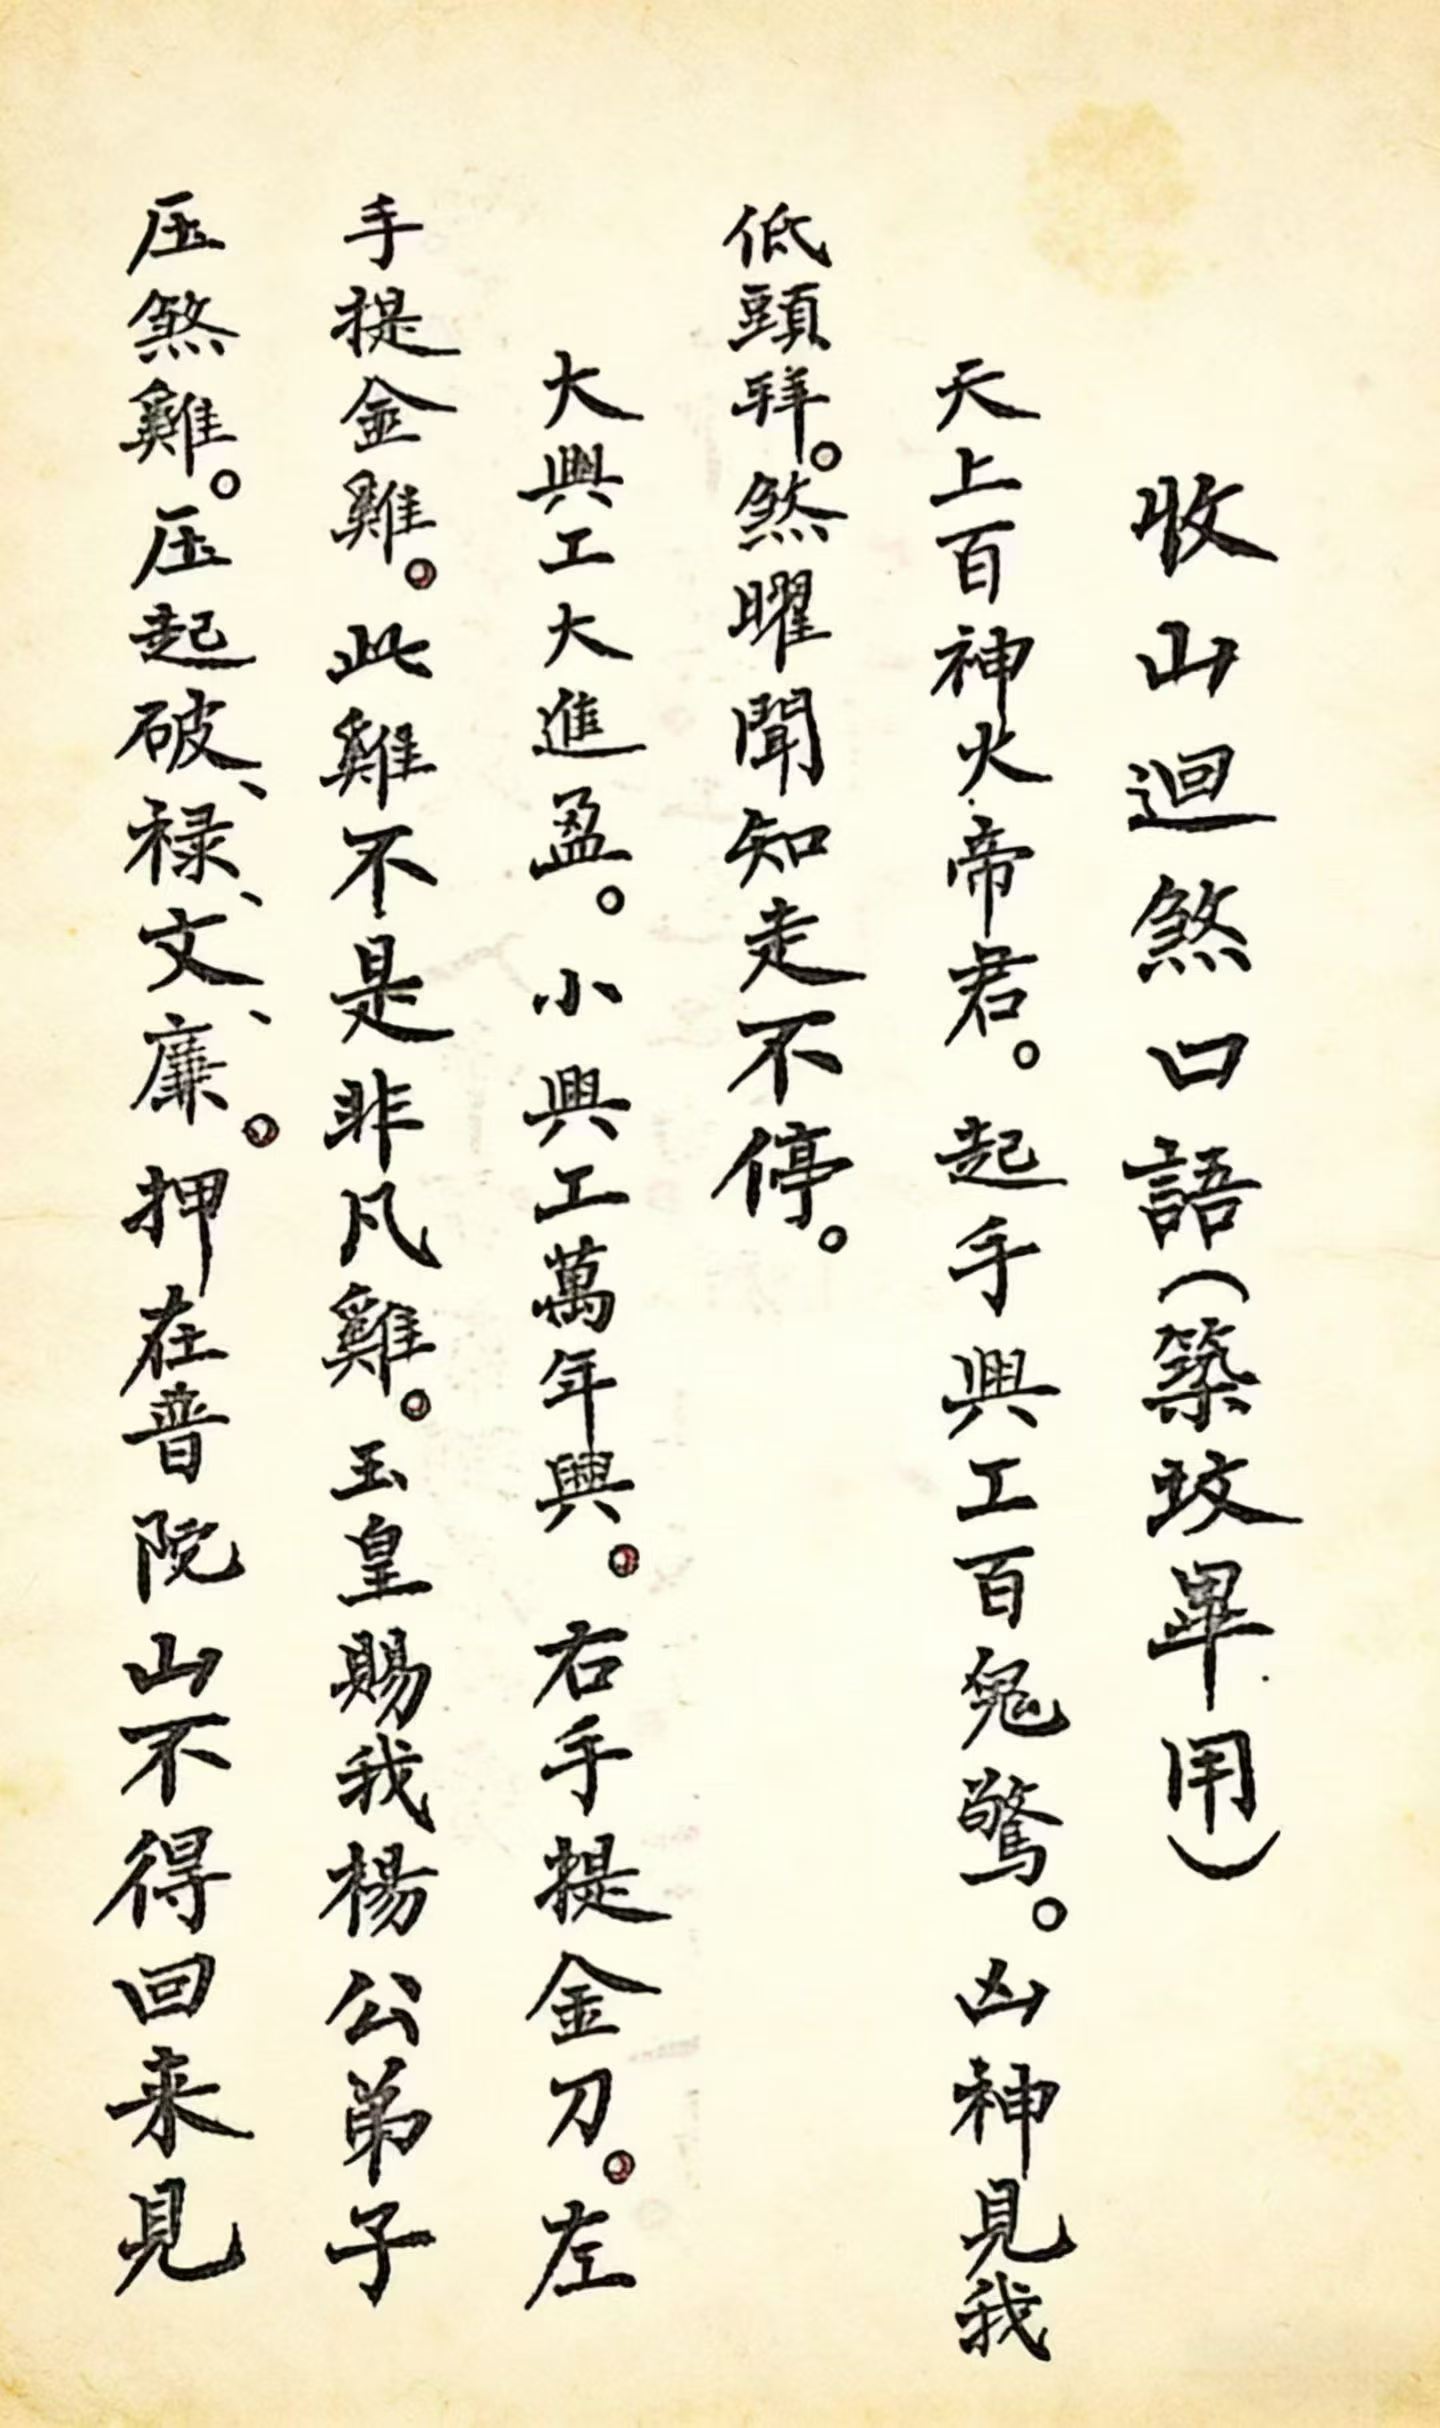 收山迴煞口語（築坟畢用）
天上百神火帝君。起手興工百鬼驚。凶神見我
低頭拜。煞曜聞知走不停。
大興工大進盈。小興工萬年興。右手提金刀。左
手提金雞。此雞不是非凡雞。玉皇賜我楊公弟子
压煞雞。压起破、禄、文、廉。押在普院山不得回来見